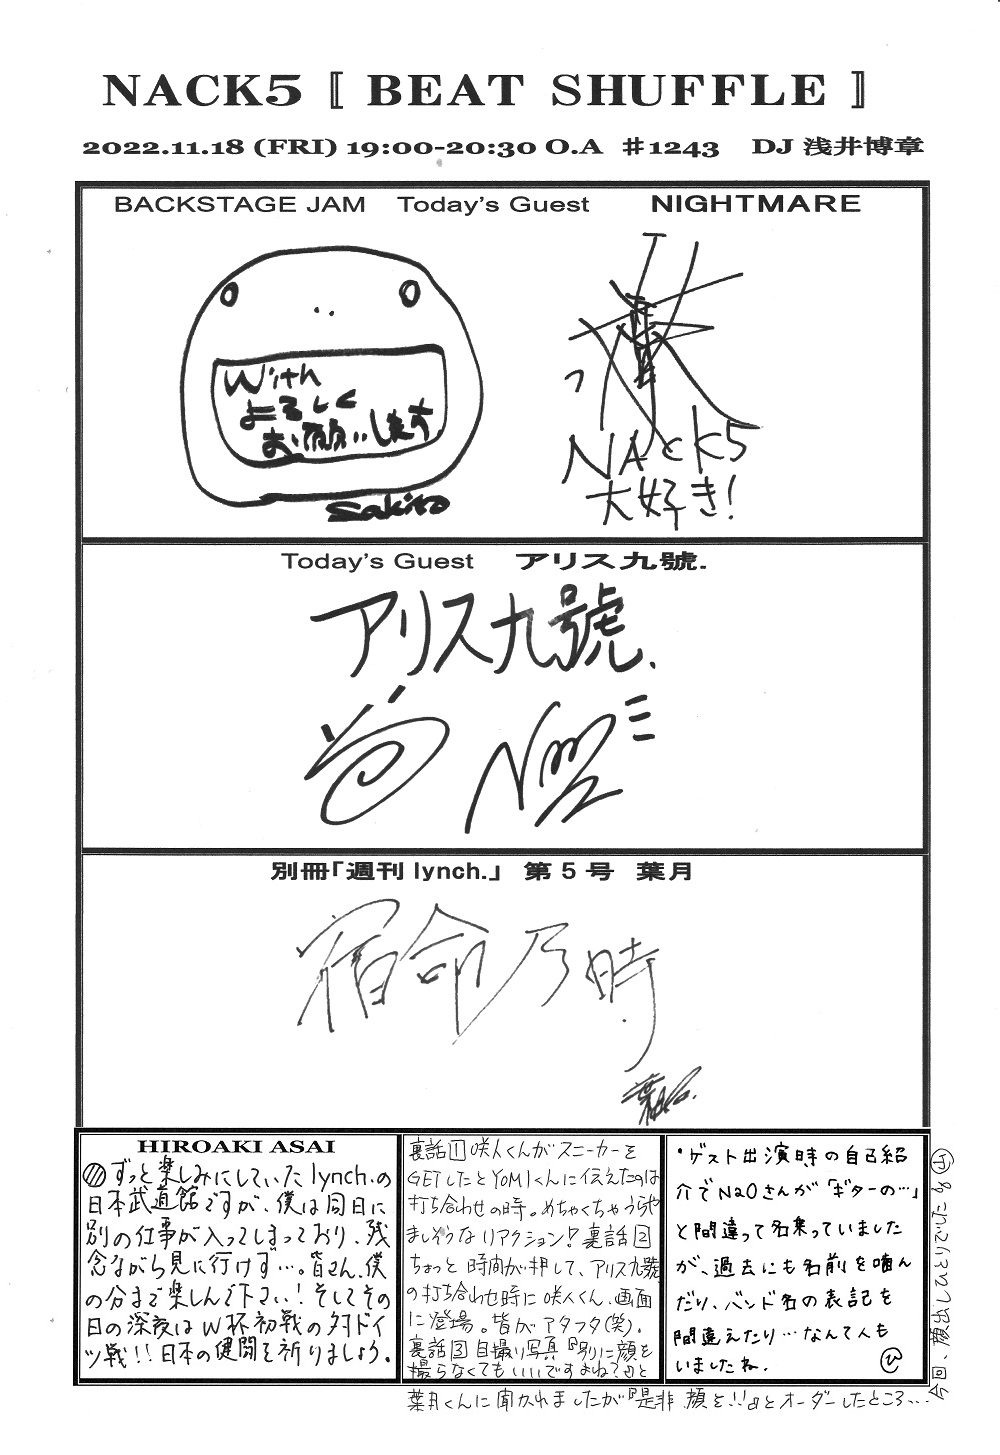 NACK5 〚 BEAT SHUFFLE 〛
2022.11.18 (FRI) 19:00-20:30 O.A ♯1243 DJ 浅井博章
BACKSTAGE JAM Today's Guest NIGHTMARE
With
よろしく
お願いします
Sakito
NAcK5
大好き!
Today's Guest アリス九號.
アリス九號.
別冊「週刊lynch.」 第5号 葉月
宿命乃時
葉月
HIROAKI ASAI
ずっと楽しみにしていたlynch.の
日本武道館ですが、僕は同日に
別の仕事が入ってしまっており、残
念ながら見に行けず…。皆さん、僕
の分まで楽しんで下さい!そしてその
日の深夜はW杯初戦の対ドイ
ツ戦!!日本の健闘を祈りましょう。
裏話1 咲人くんがスニーカーを
GETしたとYOMIくんに伝えたのは
打ち合わせの時。めちゃくちゃうらや
ましそうなリアクション!裏話2
ちょっと時間が押して、アリス九號.
の打ち合わせ時に咲人くん、画面
に登場。皆がアタフタ(笑)。
裏話3 自撮り写真『別に顔を
撮らなくてもいいですよね?』と
葉月くんに聞かれましたが『是非、顔を!!』とオーダーしたところ…
今回、顔出しひとりでした
・ゲスト出演時の自己紹
介でNaoさんが「ギターの…」
と間違って名乗っていました
が、過去にも名前を噛ん
だり、バンド名の表記を
間違えたり…なんて人も
いましたね。 ひ